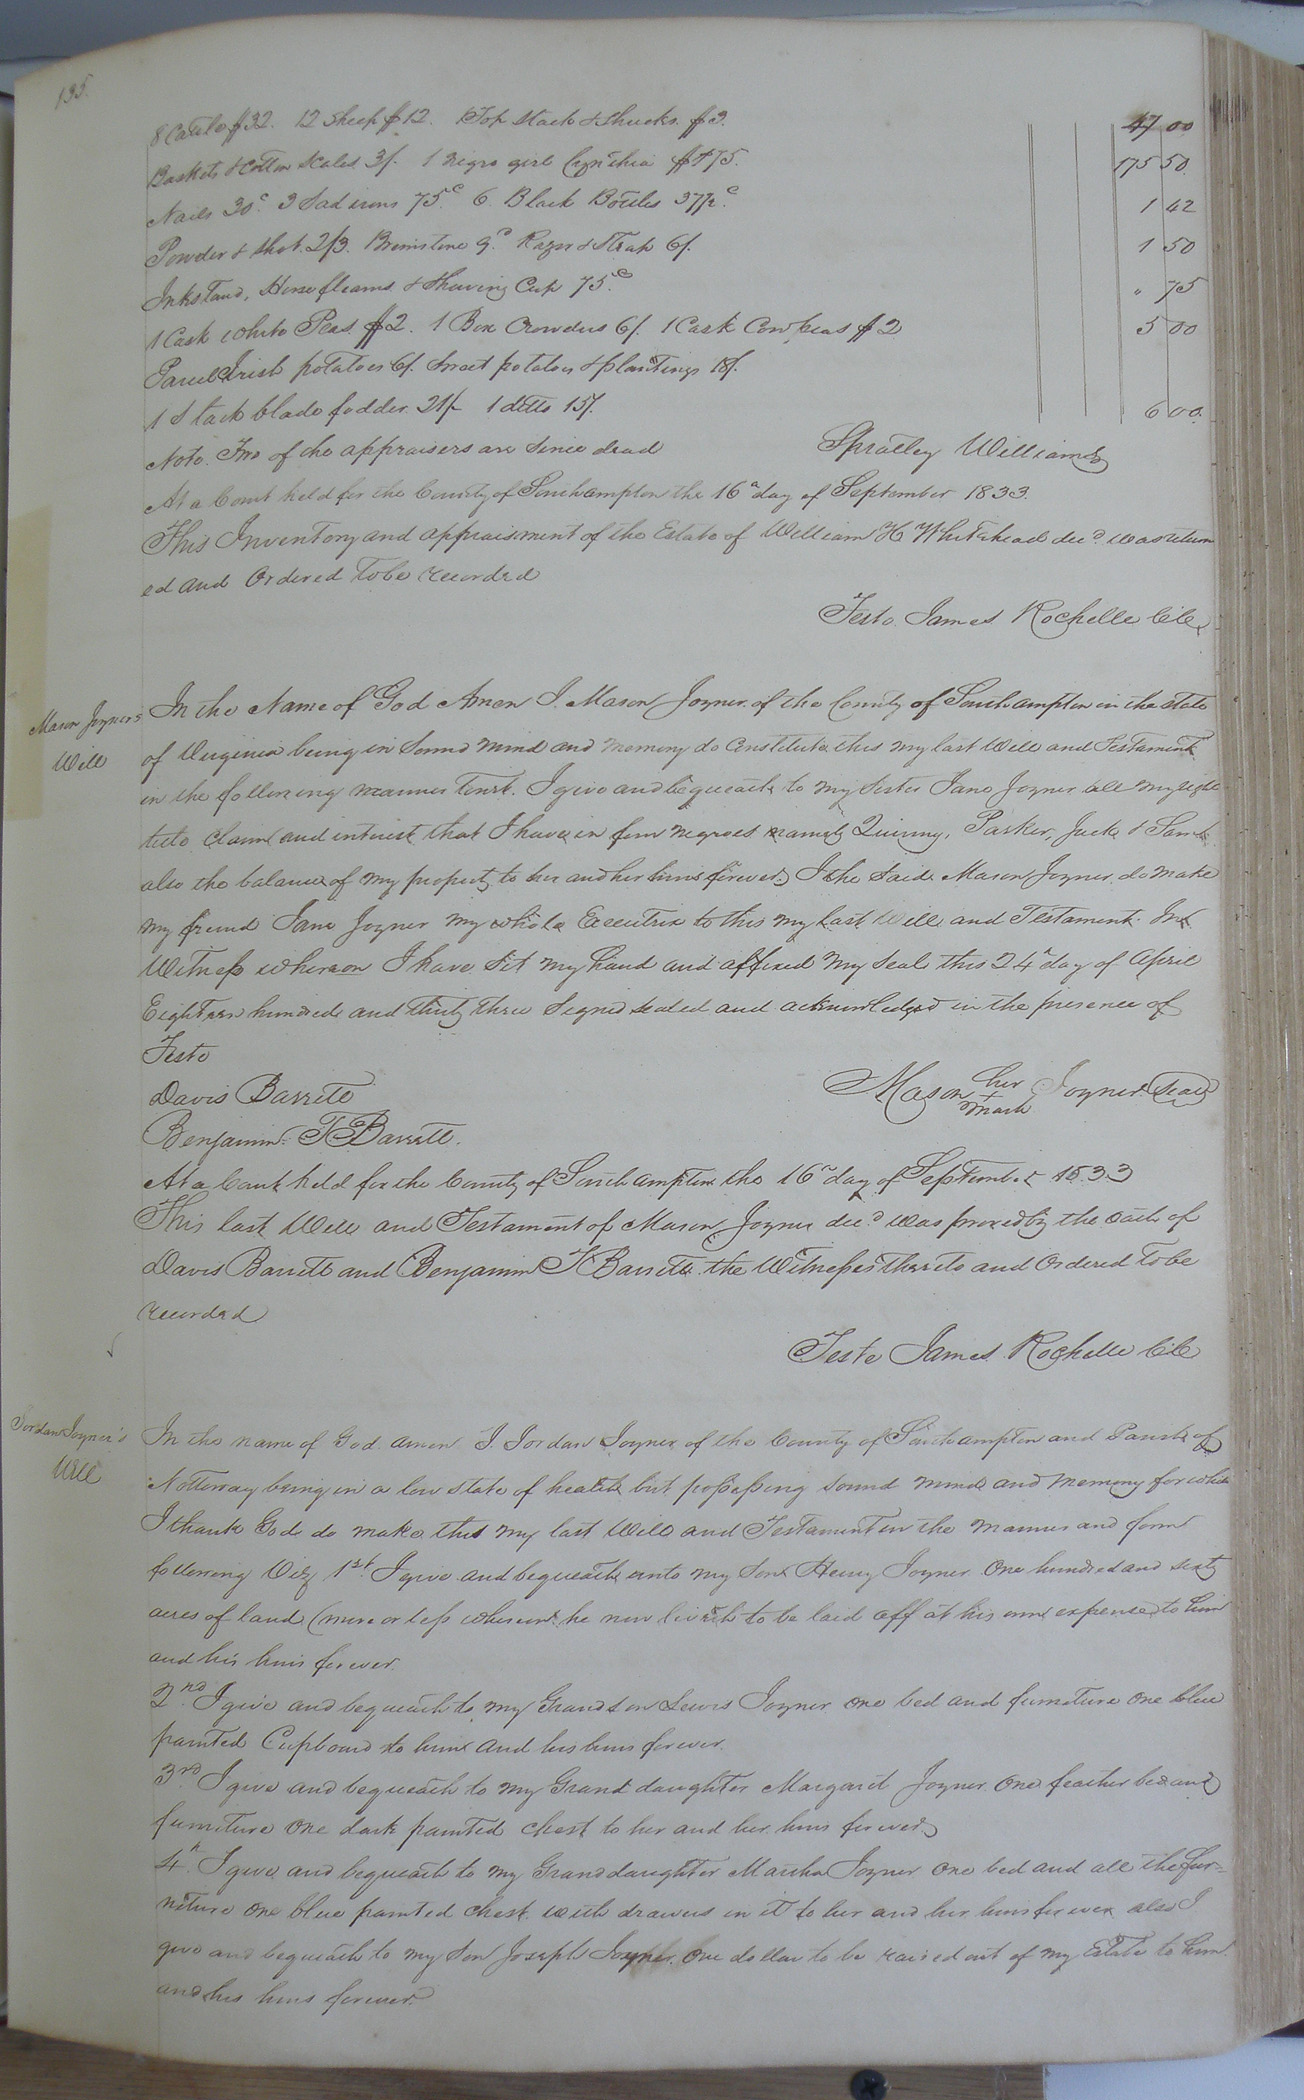 135.
8 Cattle $32. 12 Sheep $12. Top Stack & Shucks $3. 47 00
Baskets & Cotton Scales 3/. 1 negro girl Cynthia $175. 175 50
Nails 30c. 3 Sad irons 75c. 6 Black Bottles 37½c. 1 42
Powder & Shot 2/3. Brimstone 9c. Razor & Strap 6/. 1 50
Inkstand, Horse fleams & Shaving Cup 75c. " 75
1 Cask white Peas $2. 1 Box Crowders 6/. 1 Cask Cowpeas $2 5 00
Parcel Irish potatoes 6/. Sweet potatoes & plantings 18/.
1 Stack blade fodder 21/- 1 ditto 15/. 6 00.
Note. Two of the appraisers are Since dead Spratley Williams
At a Court held for the County of Southampton the 16th day of September 1833.
This Inventory and appraisment of the Estate of William H Whitehead decd. was return
ed and Ordered to be recorded
Teste James Rochelle Clk
Mason Joyner's
Will
In the Name of God Amen I. Mason Joyner of the County of Southampton in the state
of Virginia being in Sound mind and memory do Constitute this my last Will and Testament
in the following manner I give and bequeath to my Sister Jane Joyner all my right
title claim and interest that I have in four negroes namely Quinny, Parker, Jack & Sam
also the balance of my property to her and her heirs forever I the Said Mason Joyner do make
my friend Jane Joyner my whole Executrix to this my last Will and Testament. In
Witness whereon I have Set my hand and affixed my Seal this 24th day of April
Eighteen hundred and thirty three Signed sealed and acknowledged in the presence of
Teste
Davis Barrett
Mason her + mark Joyner (Seal)
Benjamin T Barrett.
At a Court held for the County of Southampton the 16th day of September 1833
This last Will and Testament of Mason Joyner decd was proved by the oath of
Davis Barrett and Benjamin T Barrett the Witnesses thereto and Ordered to be
recorded
Teste James Rochelle Clk
Jordan Joyner's
Will
In the name of God amen I. Jordan Joyner of the County of Southampton and Parish of
Nottoway being in a low state of health but possessing sound mind and memory for which
I thank God do make this my last Will and Testament in the manner and form
following Viz 1st I give and bequeath unto my Son Henry Joyner One hundred and sixty
acres of land (more or less whereon he now liveth to be laid off at his own expense to him
and his heirs forever.
2nd. I give and bequeath to my Grandson Lewis Joyner one bed and furniture one blue
painted Cupboard to him and his heirs forever.
3rd I give and bequeath to my Grand daughter Margaret Joyner One feather bed and
furniture one dark painted chest to her and her heirs forever
4th. I give and bequeath to my Granddaughter Martha Joyner one bed and all the fur=
niture one blue painted chest with drawers in it to her and her heirs forever also I
give and bequeath to my Son Joseph Joyner One dollar to be raised out of my Estate to him
and his heirs forever.